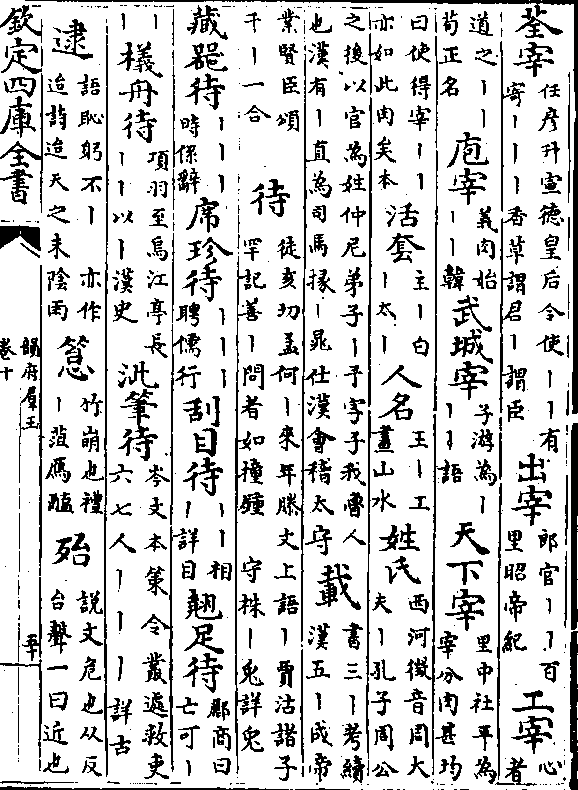 荃宰 任彦升宣德皇后令使丨丨有寄丨丨丨香草謂君丨謂臣 出宰 郎官丨丨百里昭帝紀 工宰 心者
道之丨丨荀正名 庖宰 義肉始丨丨韓 武城宰 子游為丨丨丨語 天下宰 里中社平為宰分肉甚均
曰使得宰丨丨亦如此肉矣本 活套 主丨白丨太丨 人名 王丨工畫山水 姓氏 西河徵音周大夫丨孔子周公
之後以官為姓仲尼弟子丨予字子我魯人也漢有丨直為司馬掾丨晁仕漢會稽太守 載 書三丨考績漢五丨成帝
業賢臣頌千丨一合 待 徒亥切孟何丨來年滕文上語丨賈沽諸子罕記善丨問者如撞鐘 守株丨兔詳兔
藏器待 丨丨丨時係辭 席珍待 丨丨丨聘儒行 刮目待 丨丨相丨詳目 翹足待 酈商曰亡可丨
丨丨 檥舟待 項羽至烏江亭長丨丨以丨漢史 泚筆待 岑文本策令叢遽敕吏六七人丨丨丨詳古
逮 語恥躬不丨亦作迨詩迨天之未陰雨 䈚 竹萌也禮丨菹鴈醢 殆 說文危也从歹台聲一曰近也
欽定四庫全書
韻府羣玉
卷十
五十